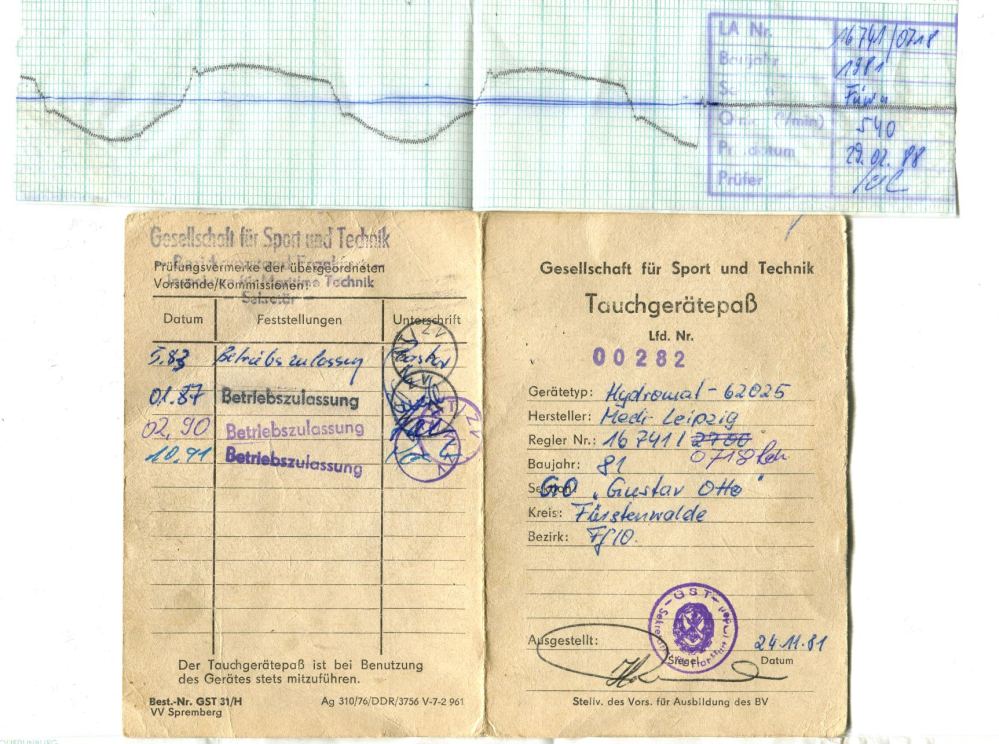 LA Nr. 16741/0718
Baujahr 1981
Fürw
540
Prüfdatum 29.02.88
Prüfer
Gesellschaft für Sport und Technik
Prüfungsvermerke der übergeordneten
Vorstände/Kommissionen:
Maritime Technik
- Sekretär -
Datum Feststellungen Unterschrift
5.83 Betriebszulassung
01.87 Betriebszulassung
02.90 Betriebszulassung
10.91 Betriebszulassung
Der Tauchgerätepaß ist bei Benutzung
des Gerätes stets mitzuführen.
Best.-Nr. GST 31/H Ag 310/76/DDR/3756 V-7-2 961
VV Spremberg
Gesellschaft für Sport und Technik
Tauchgerätepaß
Lfd. Nr.
00282
Gerätetyp: Hydromat-62025
Hersteller: Medi-Leipzig
Regler Nr.: 16741/2700
0718
Baujahr: 81
GO "Gustav Otto"
Kreis: Fürstenwalde
Bezirk: Ff/O.
GST
Ausgestellt: 24.11.81
Siegel Datum
Stellv. des Vors. für Ausbildung des BV